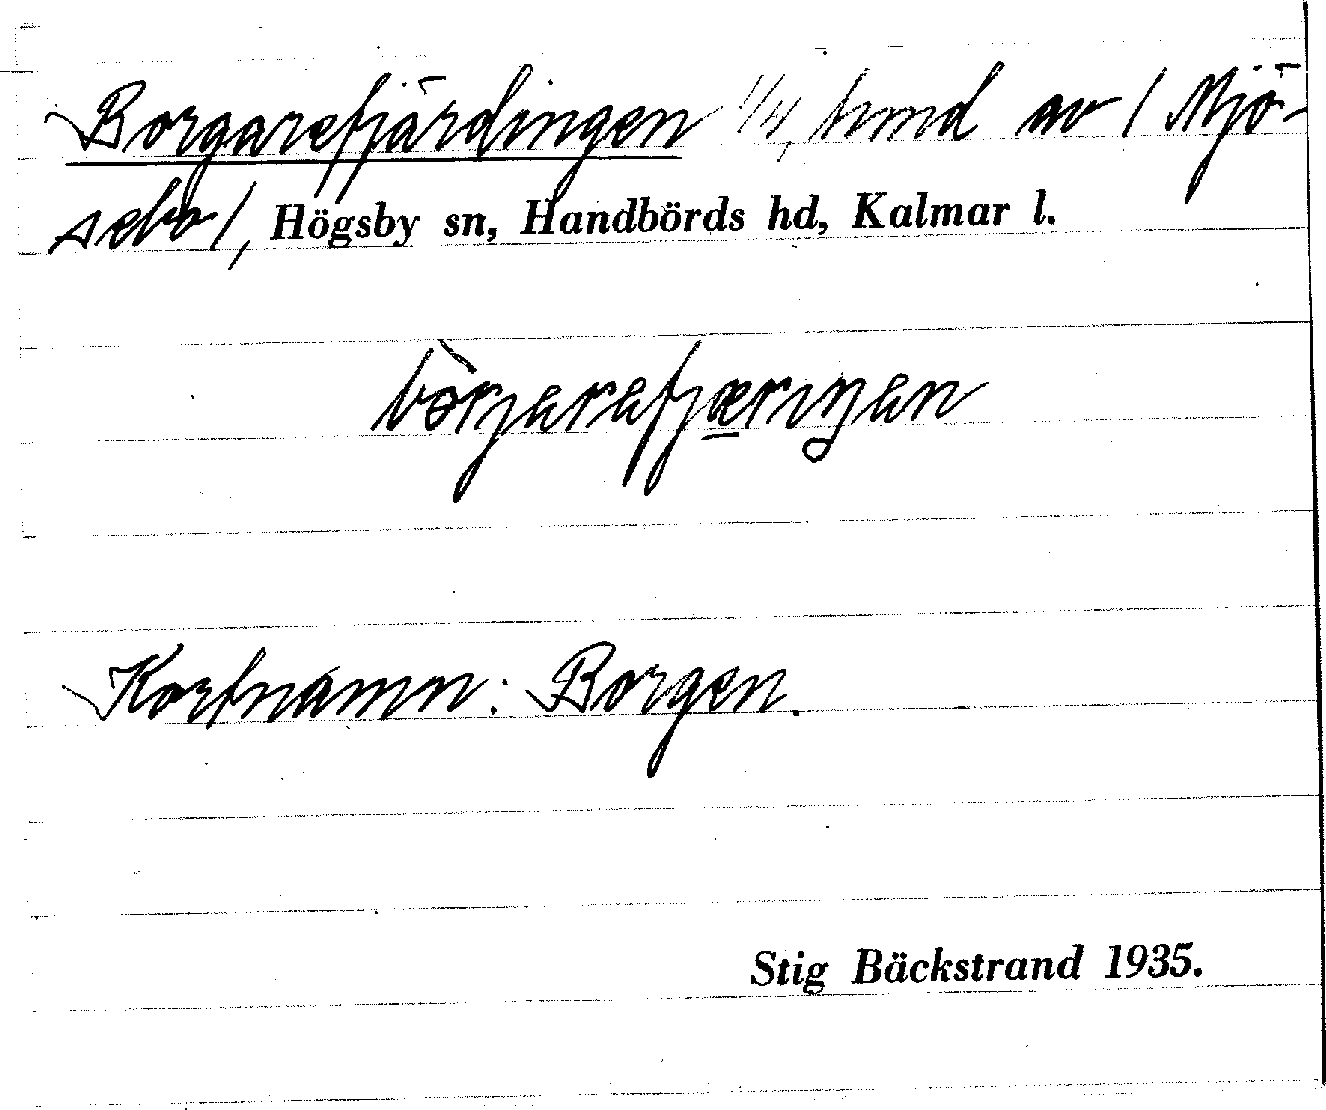 Borgarefjärdingen 1/4, hmd av / Mjö-
sebo /, Högsby sn, Handbörds hd, Kalmar l.
Kortnamn: Borgen.
Stig Bäckstrand 1935.